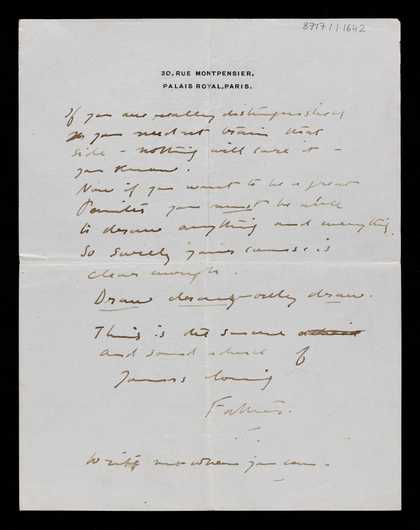 8717.1.1.1642
30, RUE MONTPENSIER,
PALAIS ROYAL, PARIS.
If you are really distinguished
you need not train that
side – nothing will cure it –
you know.
Now if you want to be a great
Painter you must be able
to draw anything and everything.
So surely your course is
clear enough.
Draw draw – only draw.
This is the sincere
and sound advice of
Yours loving
Father.
Write me when you can.